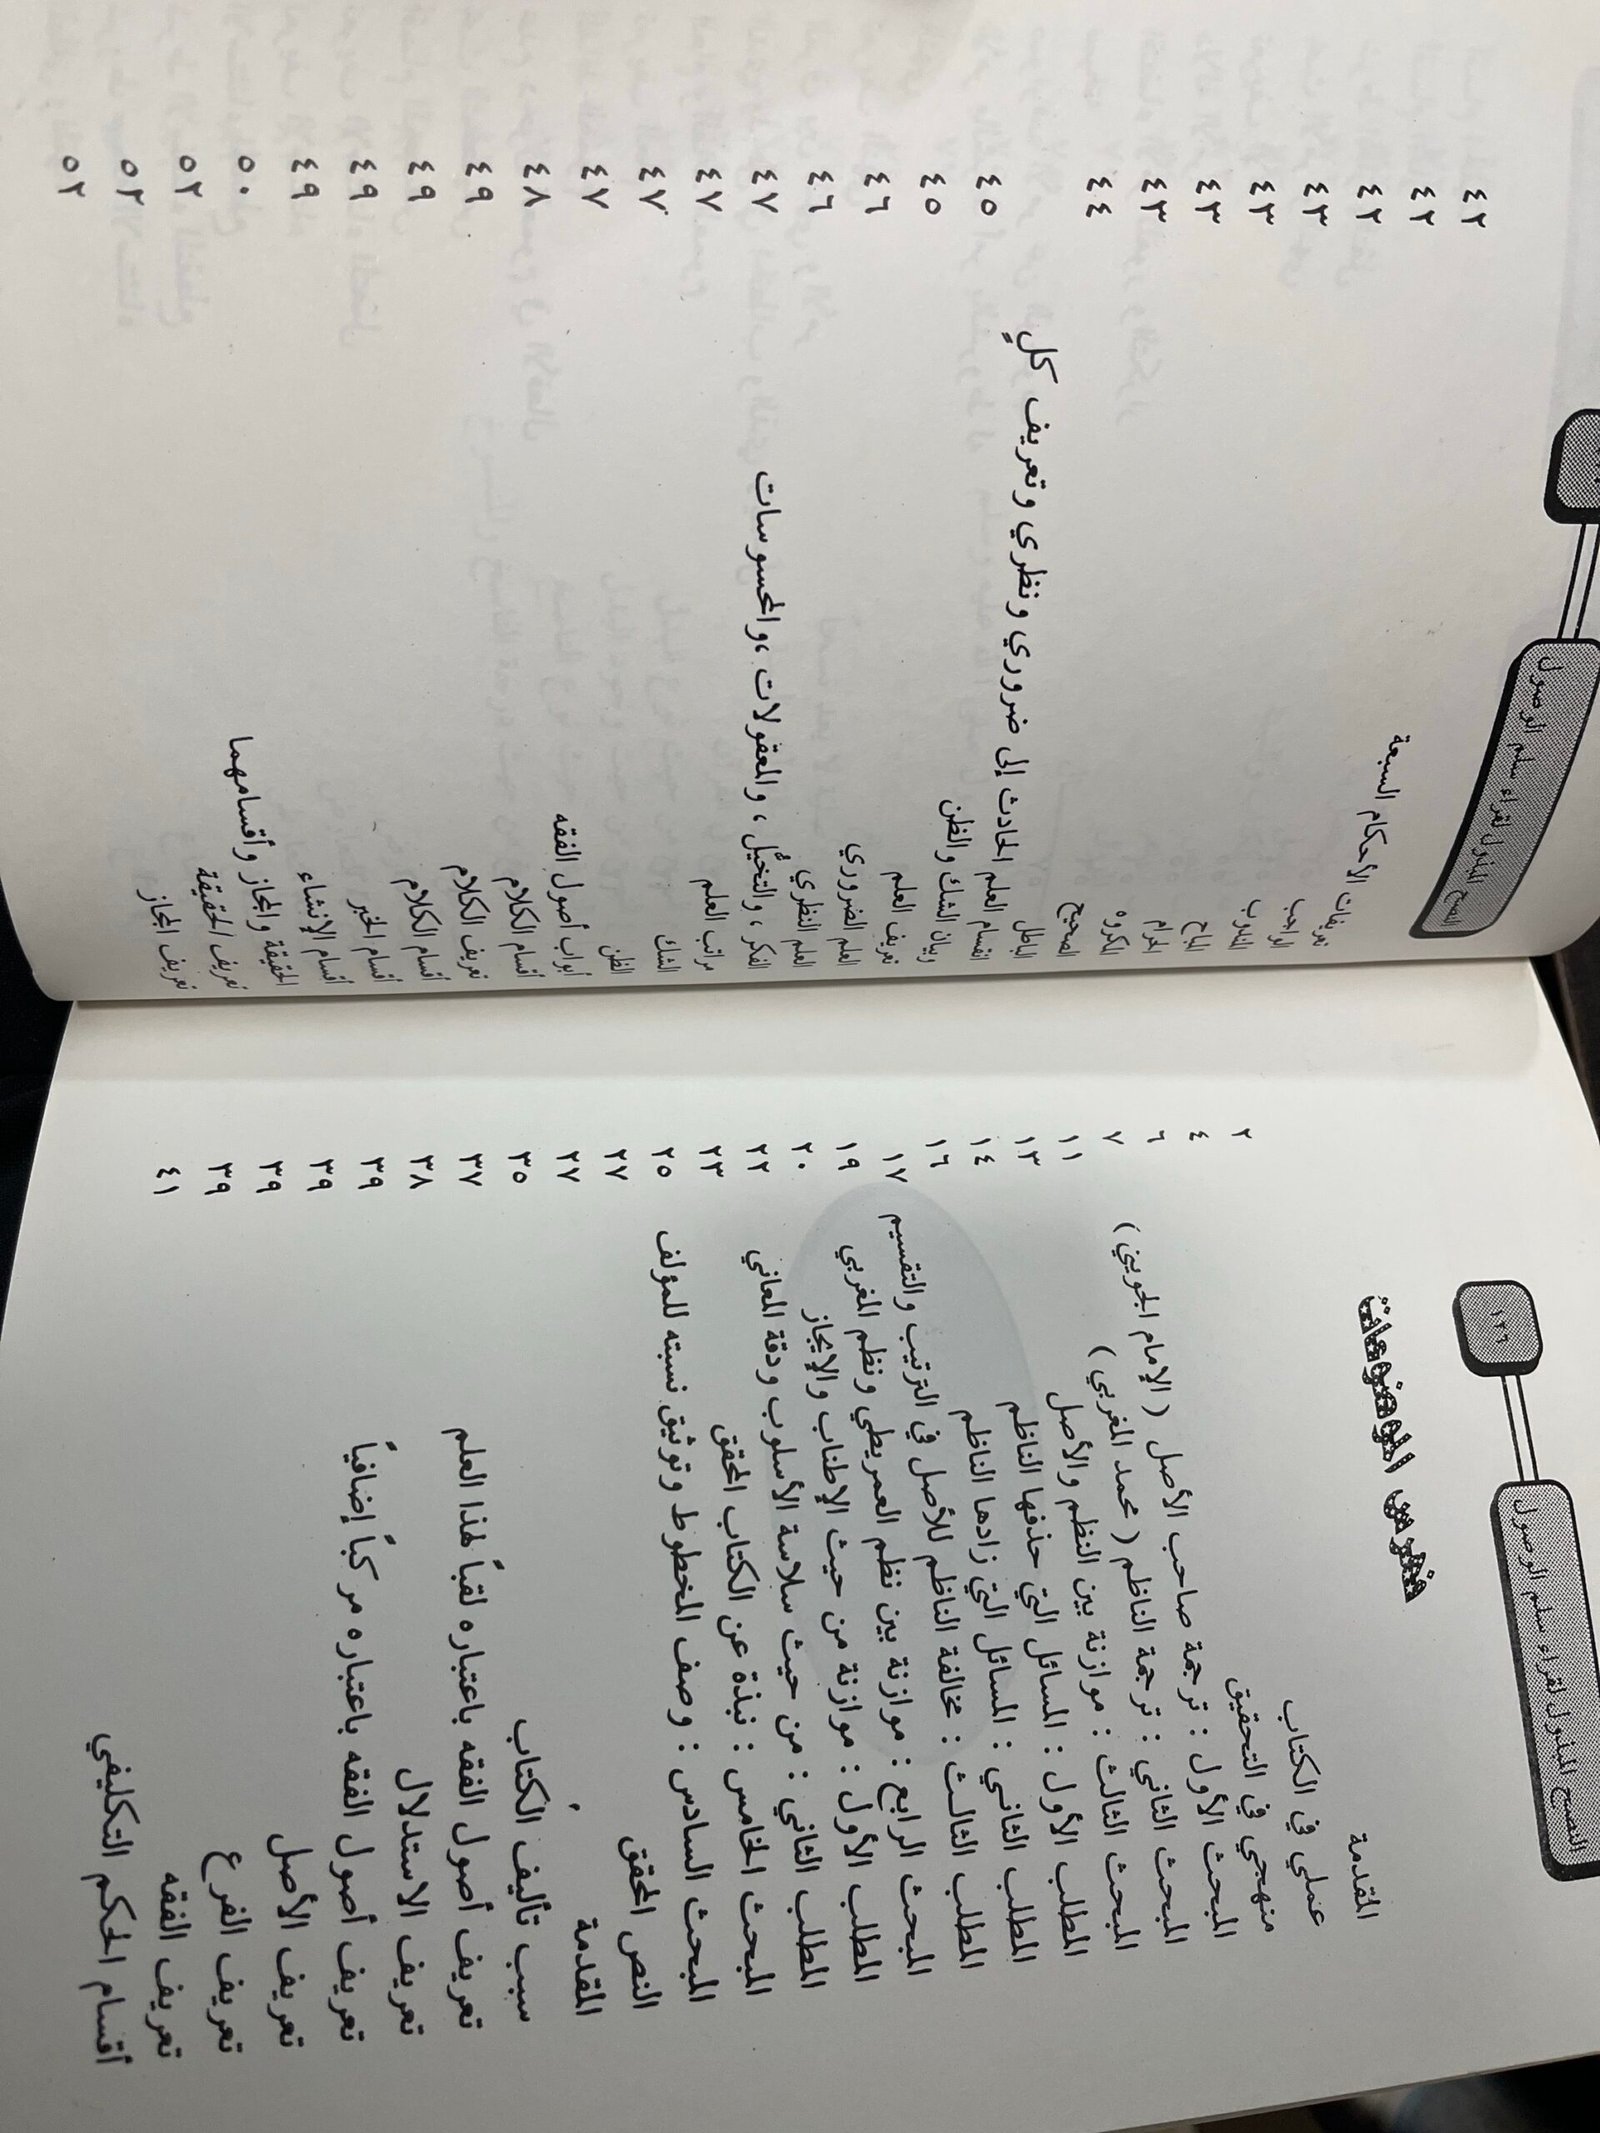 النصح المبذول لقراء سلم الوصول
١٢٦
فهرس الموضوعات
المقدمة ٢
عملي في الكتاب ٤
منهجي في التحقيق ٦
المبحث الأول : ترجمة صاحب الأصل ( الإمام الجويني ) ٧
المبحث الثاني : ترجمة الناظم ( محمد المغربي ) ١١
المبحث الثالث : موازنة بين النظم والأصل ١٣
المطلب الأول : المسائل التي حذفها الناظم ١٤
المطلب الثاني : المسائل التي زادها الناظم ١٦
المطلب الثالث : مخالفة الناظم للأصل في الترتيب والتقسيم ١٧
المبحث الرابع : موازنة بين نظم العمريطي ونظم المغربي ١٩
المطلب الأول : موازنة من حيث الإطناب والإيجاز ٢٠
المطلب الثاني : من حيث سلاسة الأسلوب ودقة المعاني ٢٢
المبحث الخامس : نبذة عن الكتاب المحقق ٢٣
المبحث السادس : وصف المخطوط وتوثيق نسبته للمؤلف ٢٥
النص المحقق ٢٧
المقدمة ٢٧
سبب تأليف الكتاب ٣٥
تعريف أصول الفقه باعتباره لقباً لهذا العلم ٣٧
تعريف الاستدلال ٣٨
تعريف أصول الفقه باعتباره مركباً إضافياً ٣٩
تعريف الأصل ٣٩
تعريف الفرع ٣٩
تعريف الفقه ٣٩
أقسام الحكم التكليفي ٤١
النصح المبذول لقراء سلم الوصول
تعريفات الأحكام السبعة ٤٢
الواجب ٤٢
المندوب ٤٢
المباح ٤٣
الحرام ٤٣
المكروه ٤٣
الصحيح ٤٣
الباطل ٤٤
انقسام العلم الحادث إلى ضروري ونظري وتعريف كلٍ
وبيان الشك والظن ٤٥
تعريف العلم ٤٥
العلم الضروري ٤٦
العلم النظري ٤٦
الفكر ، والتخيُّل ، والمعقولات ،والمحسوسات ٤٧
مراتب العلم ٤٧
الشك ٤٧
الظن ٤٧
أبواب أصول الفقه ٤٨
أقسام الكلام ٤٩
تعريف الكلام ٤٩
أقسام الكلام ٤٩
أقسام الخبر ٤٩
أقسام الإنشاء ٥٠
الحقيقة والمجاز وأقسامهما ٥٢
تعريف الحقيقة ٥٢
تعريف المجاز ٥٢